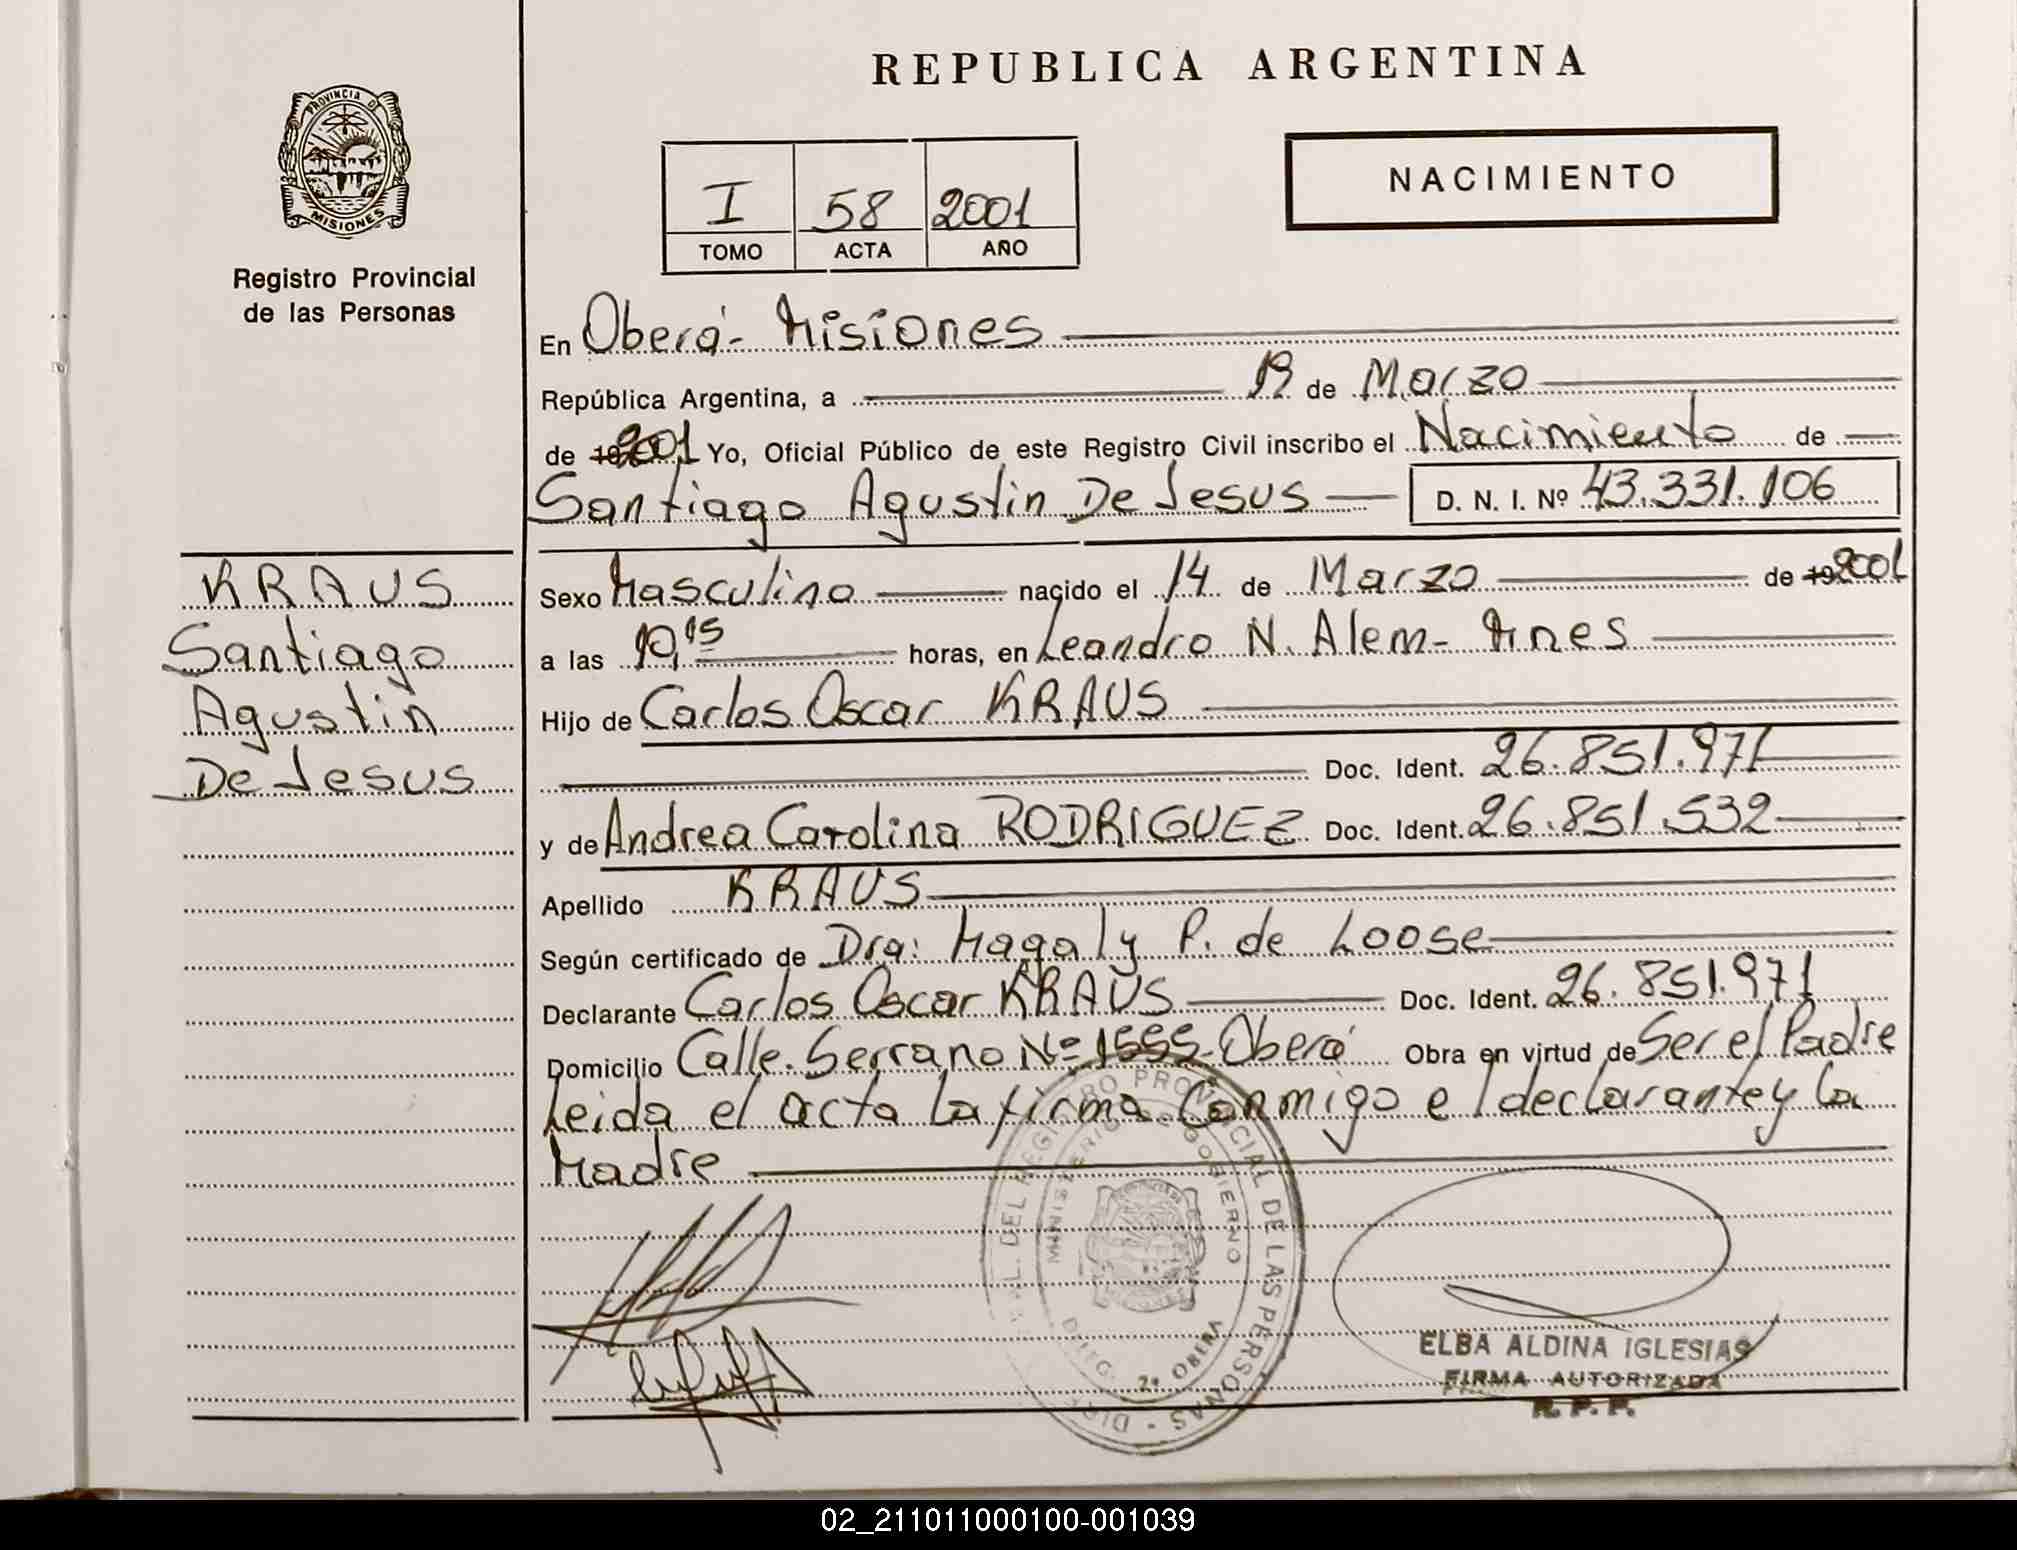 REPUBLICA ARGENTINA
PROVINCIA DE
MISIONES
Registro Provincial
de las Personas
I 58 2001
TOMO ACTA AÑO
NACIMIENTO
En Oberá- Misiones
República Argentina, a 19 de Marzo
de 2001 Yo, Oficial Público de este Registro Civil inscribo el Nacimiento de
Santiago Agustin De Jesus D. N. I. Nº 43.331.106
KRAUS
Santiago
Agustin
De Jesus
Sexo Masculino nacido el 14 de Marzo de 19 2001
a las 10,15 horas, en Leandro N. Alem- Mnes
Hijo de Carlos Oscar KRAUS
Doc. Ident. 26.851.971
y de Andrea Carolina RODRIGUEZ Doc. Ident. 26.851.532
Apellido KRAUS
Según certificado de Dra: Magaly P. de Loose
Declarante Carlos Oscar KRAUS Doc. Ident. 26.851.971
Domicilio Calle. Serrano Nº 1555- Oberá Obra en virtud de Ser el Padre
Leida el acta la firma Conmigo el declarante y la
Madre
DIR. GRAL. DEL REGISTRO PROVINCIAL DE LAS PERSONAS -
MINISTERIO DE GOBIERNO
DELEG. 2ª OBERA
ELBA ALDINA IGLESIAS
FIRMA AUTORIZADA
R. P. P.
02_211011000100-001039